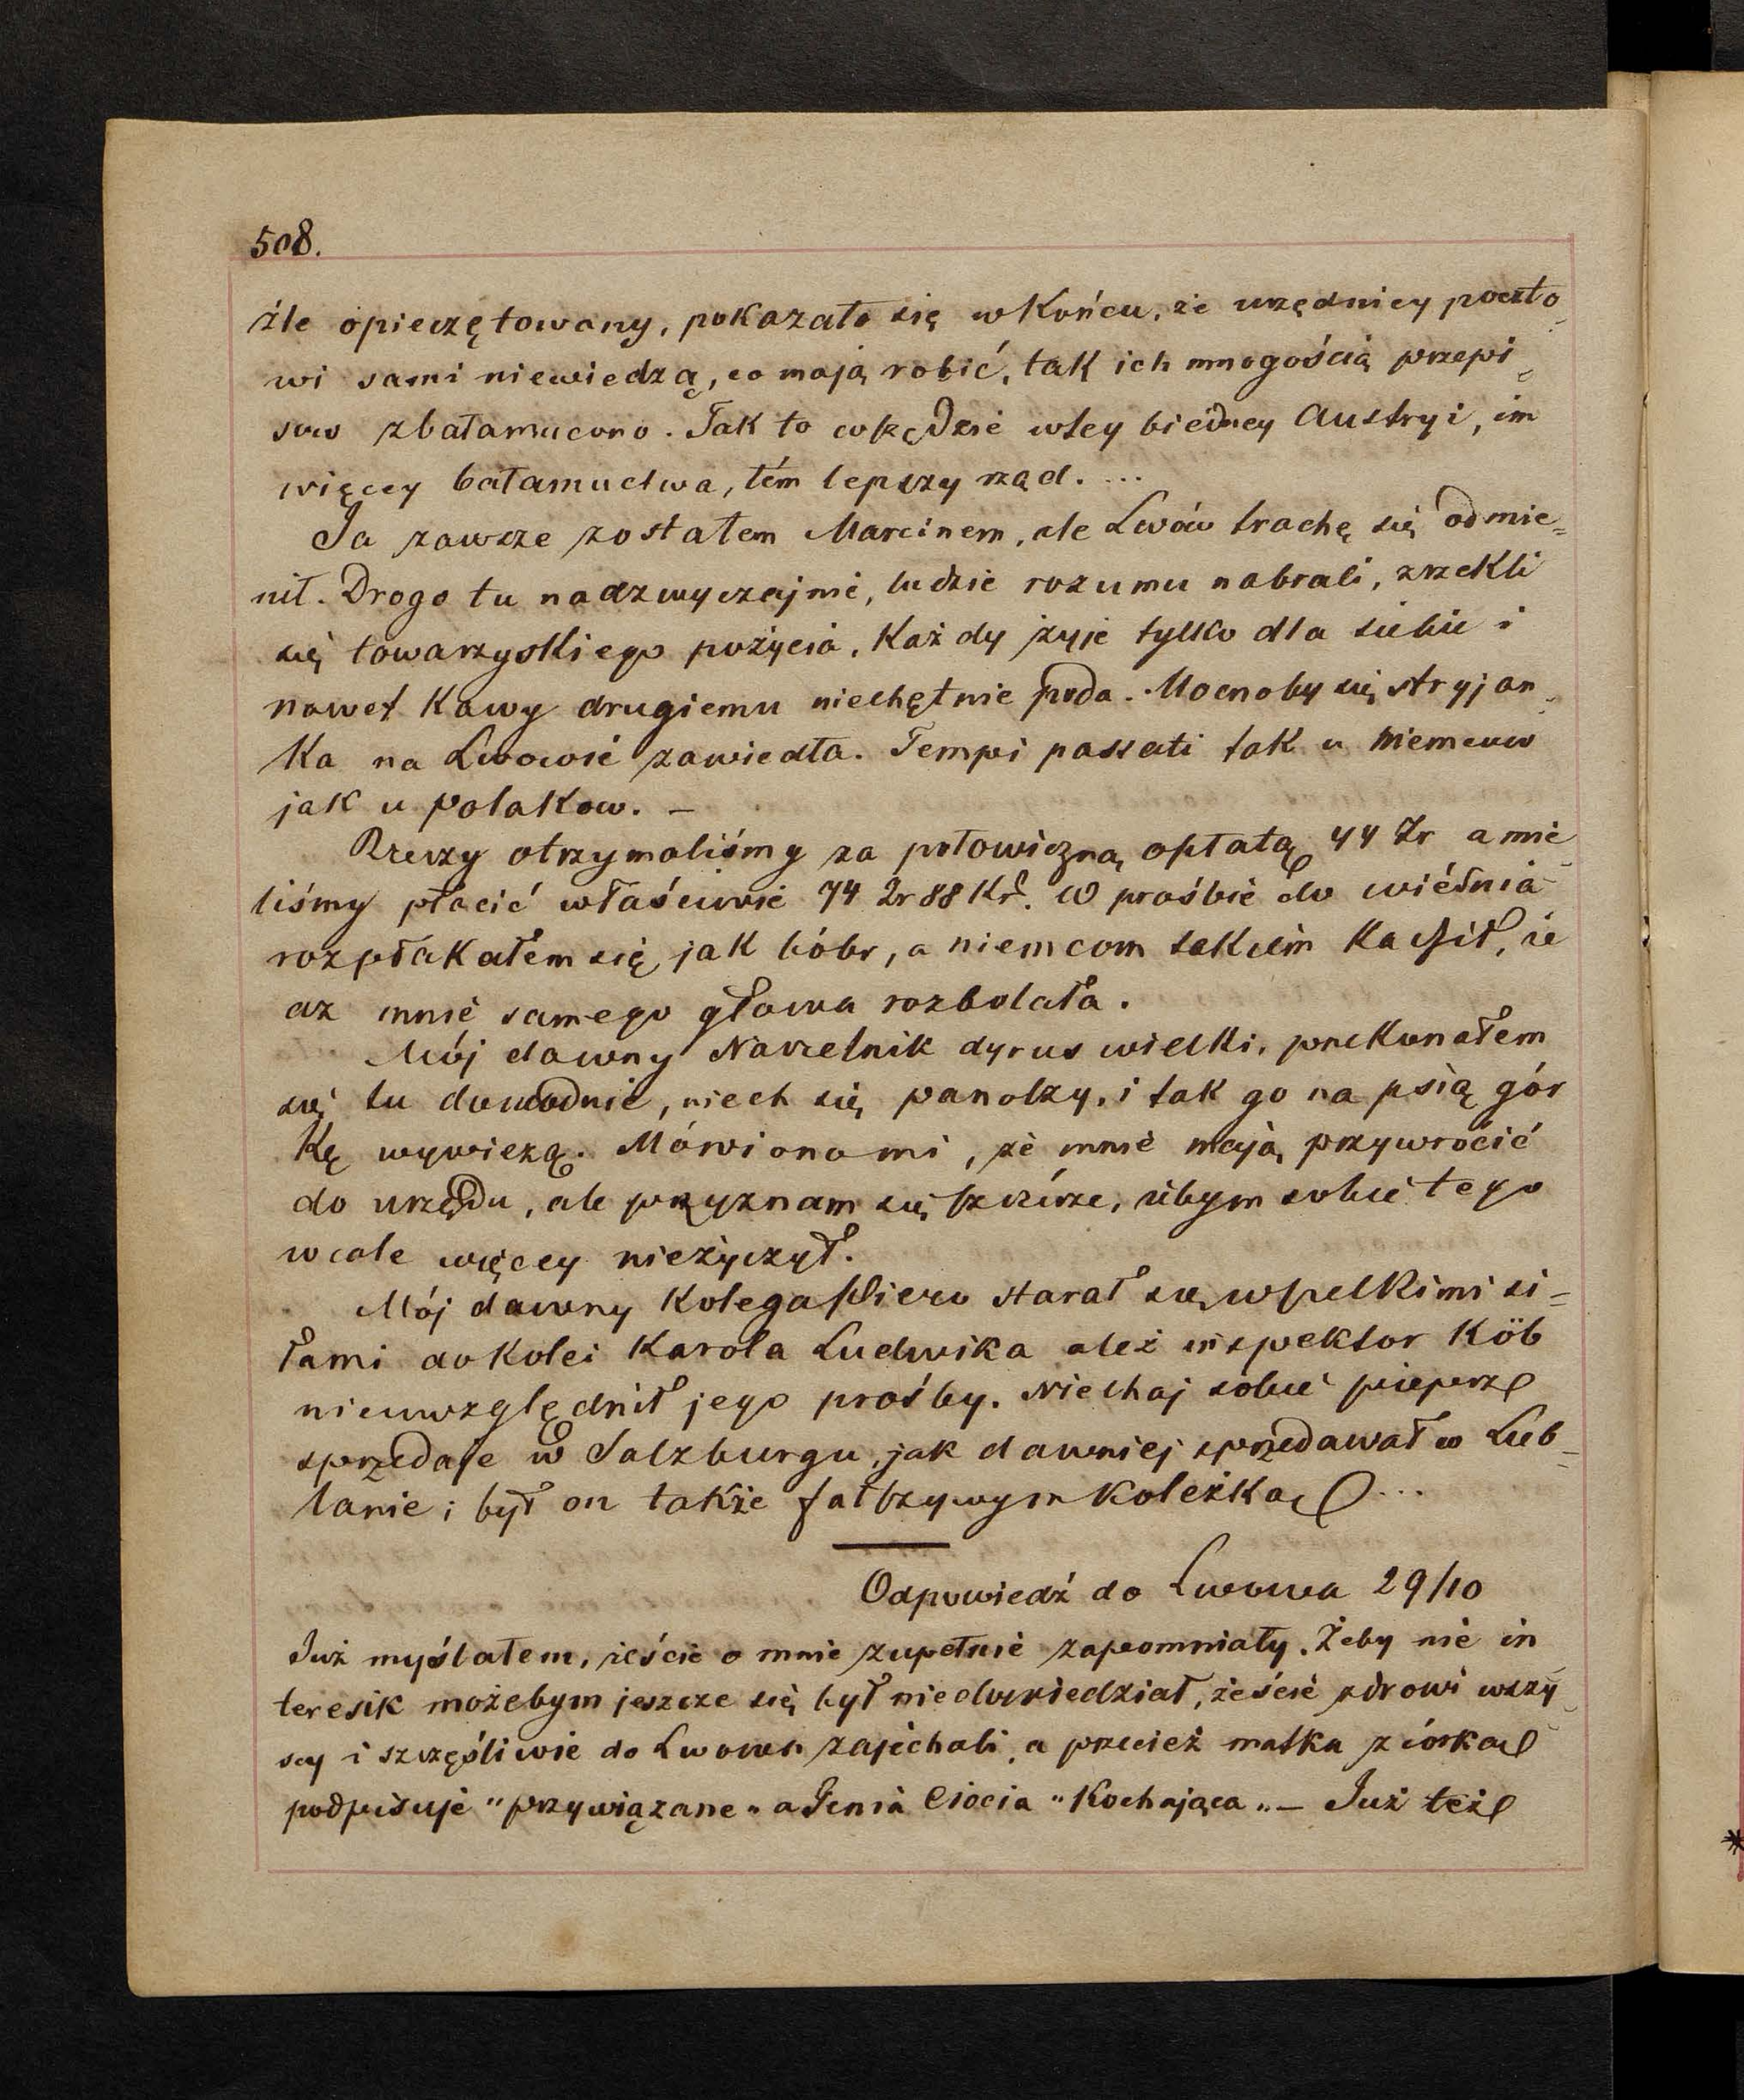 508.
źle opieczętowany, pokazało się w końcu, że urzędnicy poczto-
wi sami niewiedzą, co mają robić, tak ich mnogością przepi-
sow zbałamucono. Tak to wszędzie w tey biednej Austryi, im
więcey bałamuctwa, tém lepszy rząd. ...
Ja zawsze zostałem Marcinem, ale Lwów trachę się odmie=
nił. Drogo tu nadzwyczajnie, ludzie rozumu nabrali, zrzekli
się towarzyskiego pożycia, Każdy żyje tylko dla siebie i
nawet Kawy drugiemu niechętnie poda. Mocnoby się stryjan-
ka na Lwowie zawiedła. Tempi passati tak u niemcow
jak u polakow. —
Rzeczy otrzymaliśmy za połowiczną opłatą 44 Zr a mie-
liśmy płacić właściwie 74 Zr 88 Kr. W prośbie do
rozpłakałem się jak bóbr, a niemcom takiem że
aż mnie samego głowa rozbolała.
Mój dawny Naczelnik dyrus wielki, przekonałem
się tu dowodnie, niech się panoszy, i tak go na psią gór
kę wywiezą. Mówionomi, że mnie mają przywrócić
do urzędu, ale przyznam się szczérze, iżbym sobie tego
wcale więcey nieżyczył.
Mój dawny Kolega starał się wszelkimi si=
łami do Kolei Karola Ludwika ależ inspektor Köb
nieuwzględnił jego prośby. Niechaj sobie pieprz
sprzedaje w Salzburgu, jak dawniej sprzedawał w Lub-
lanie; był on także fałszywym koleżką ...
Odpowiedź do Lwowa 29/10
Już myślałem, żeście o mnie zupełnie zapomniały. Żeby nie in
teresik możebym jeszcze się był niedowiedział, żeście zdrowi wszy-
scy i szczęśliwie do Lwowa zajechali, a przecież matka z córką
podpisuje "przywiązane" a Jenia Ciocia "Kochająca" — Już też